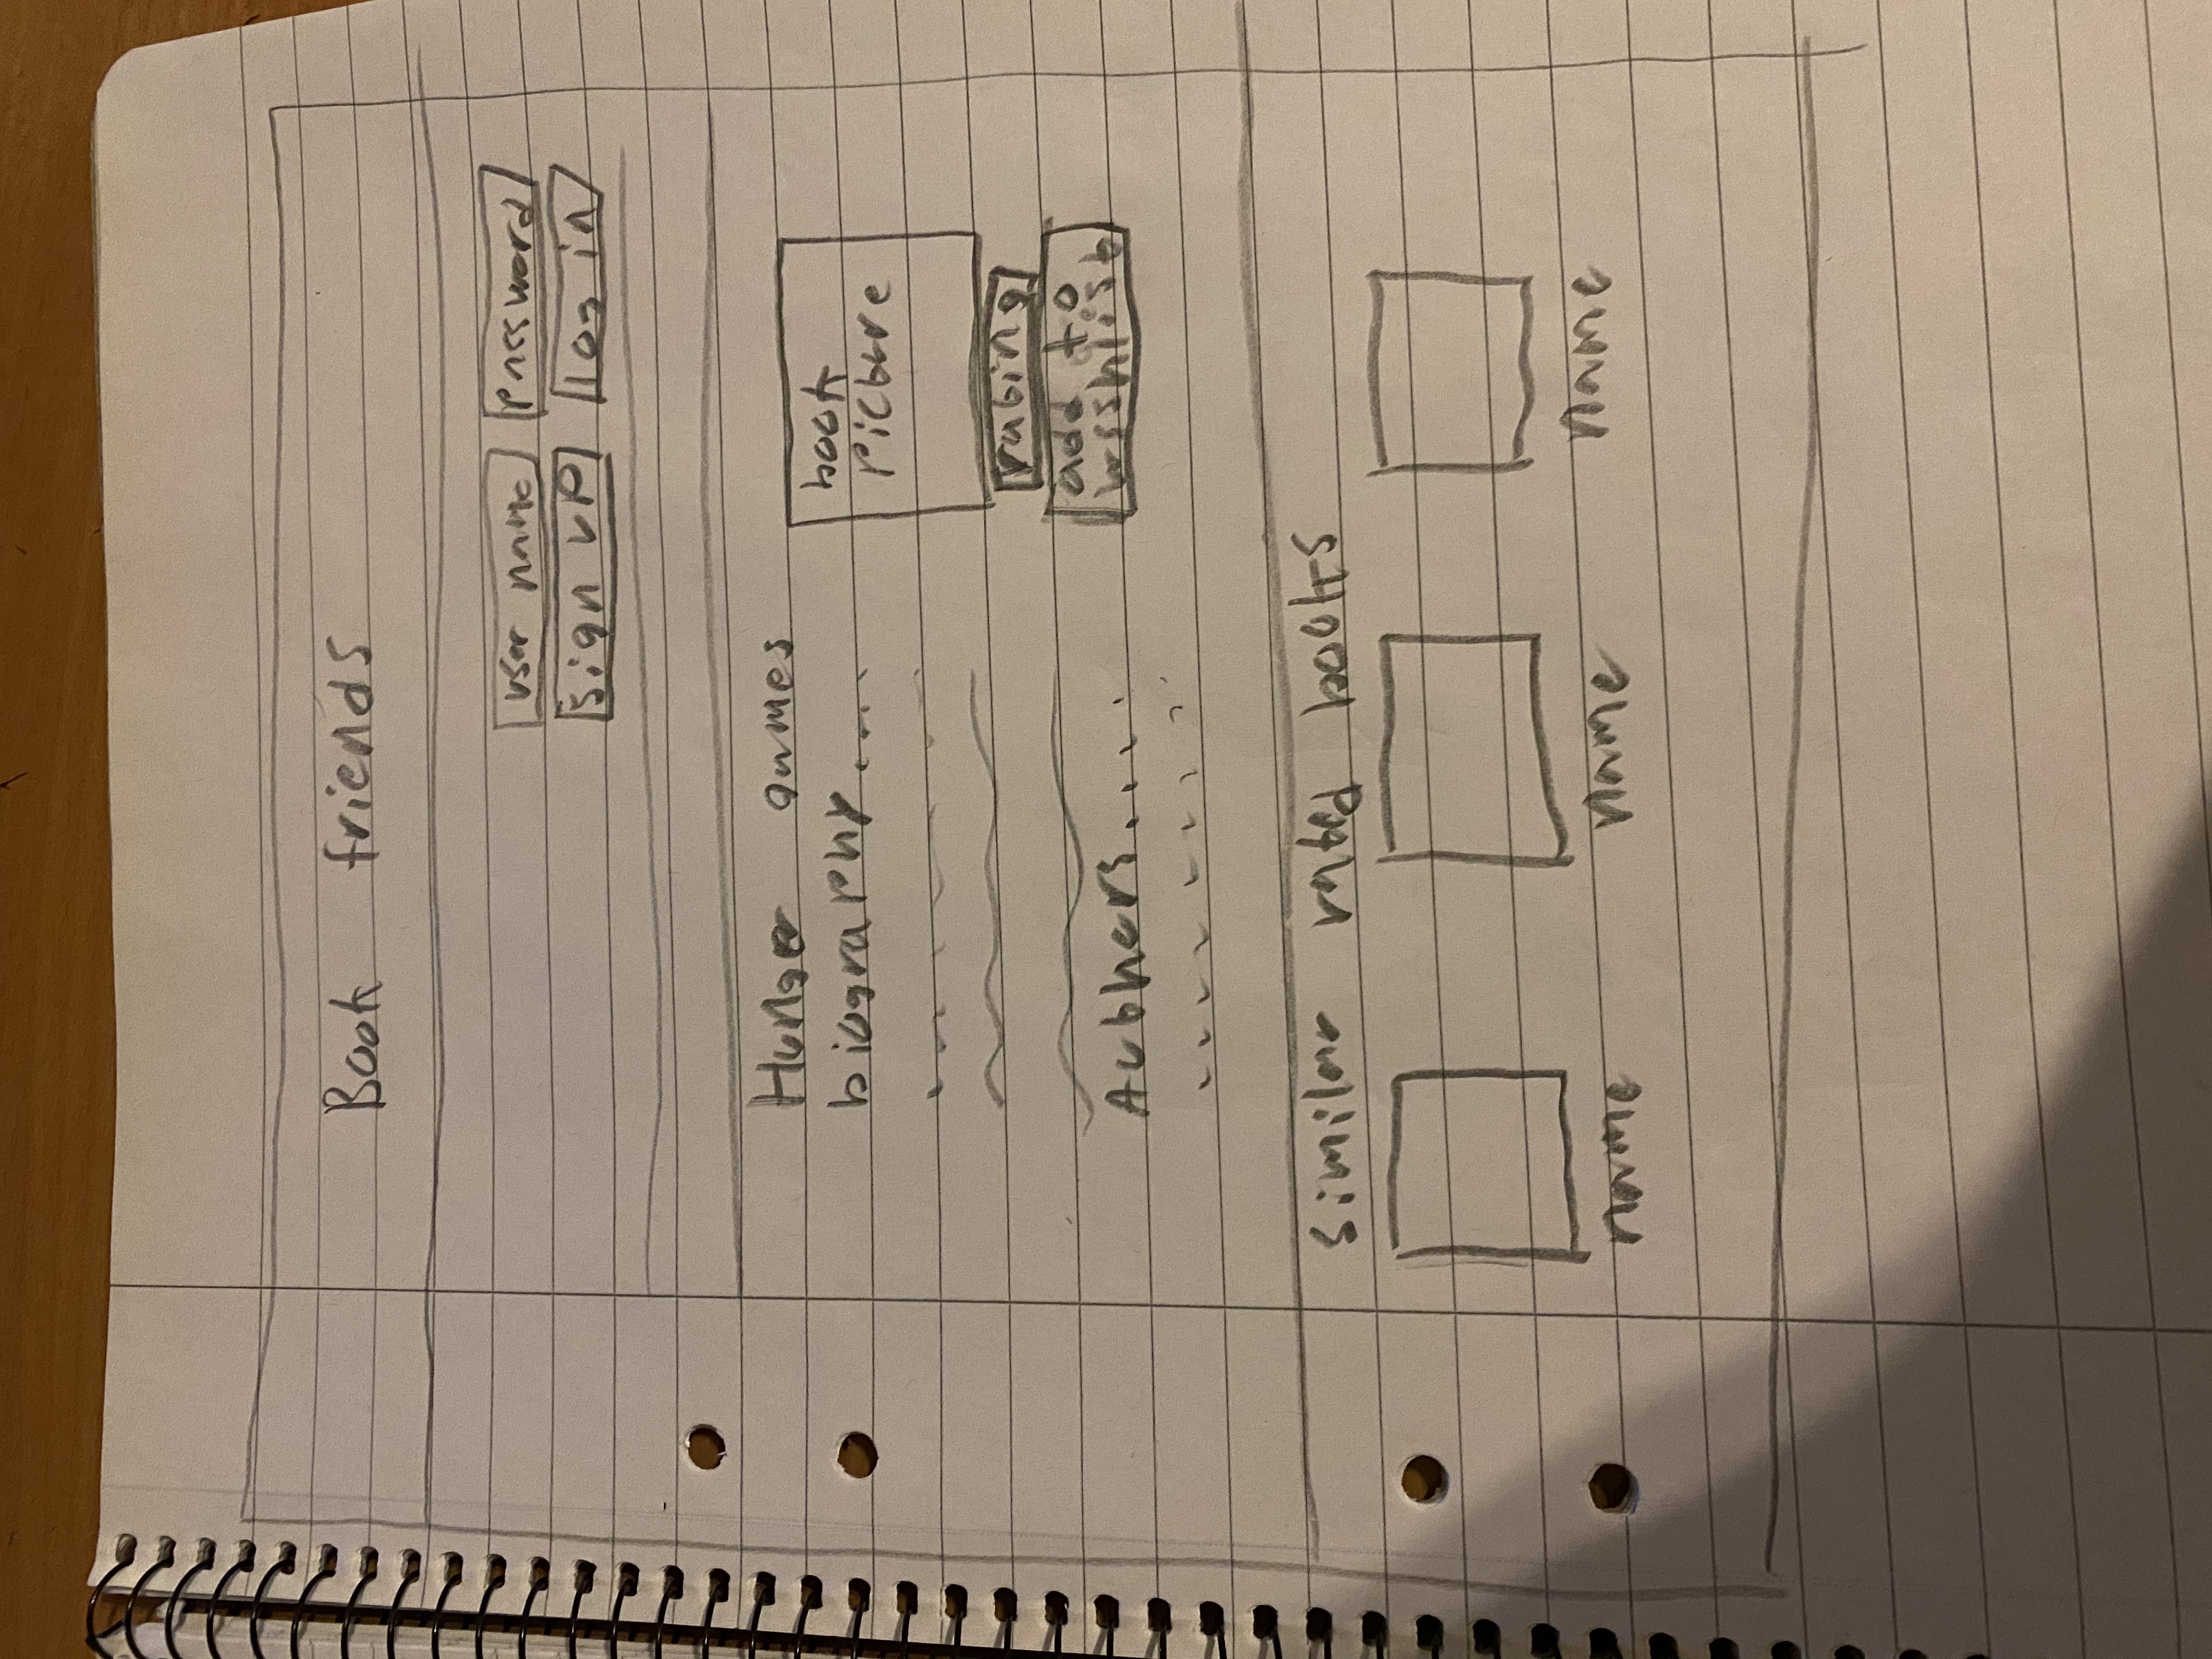 Book friends
user name password
sign up log in
Hunger games
biography....
book
picture
rating
add to
wishlist
Authers....
similar rated books
name name name